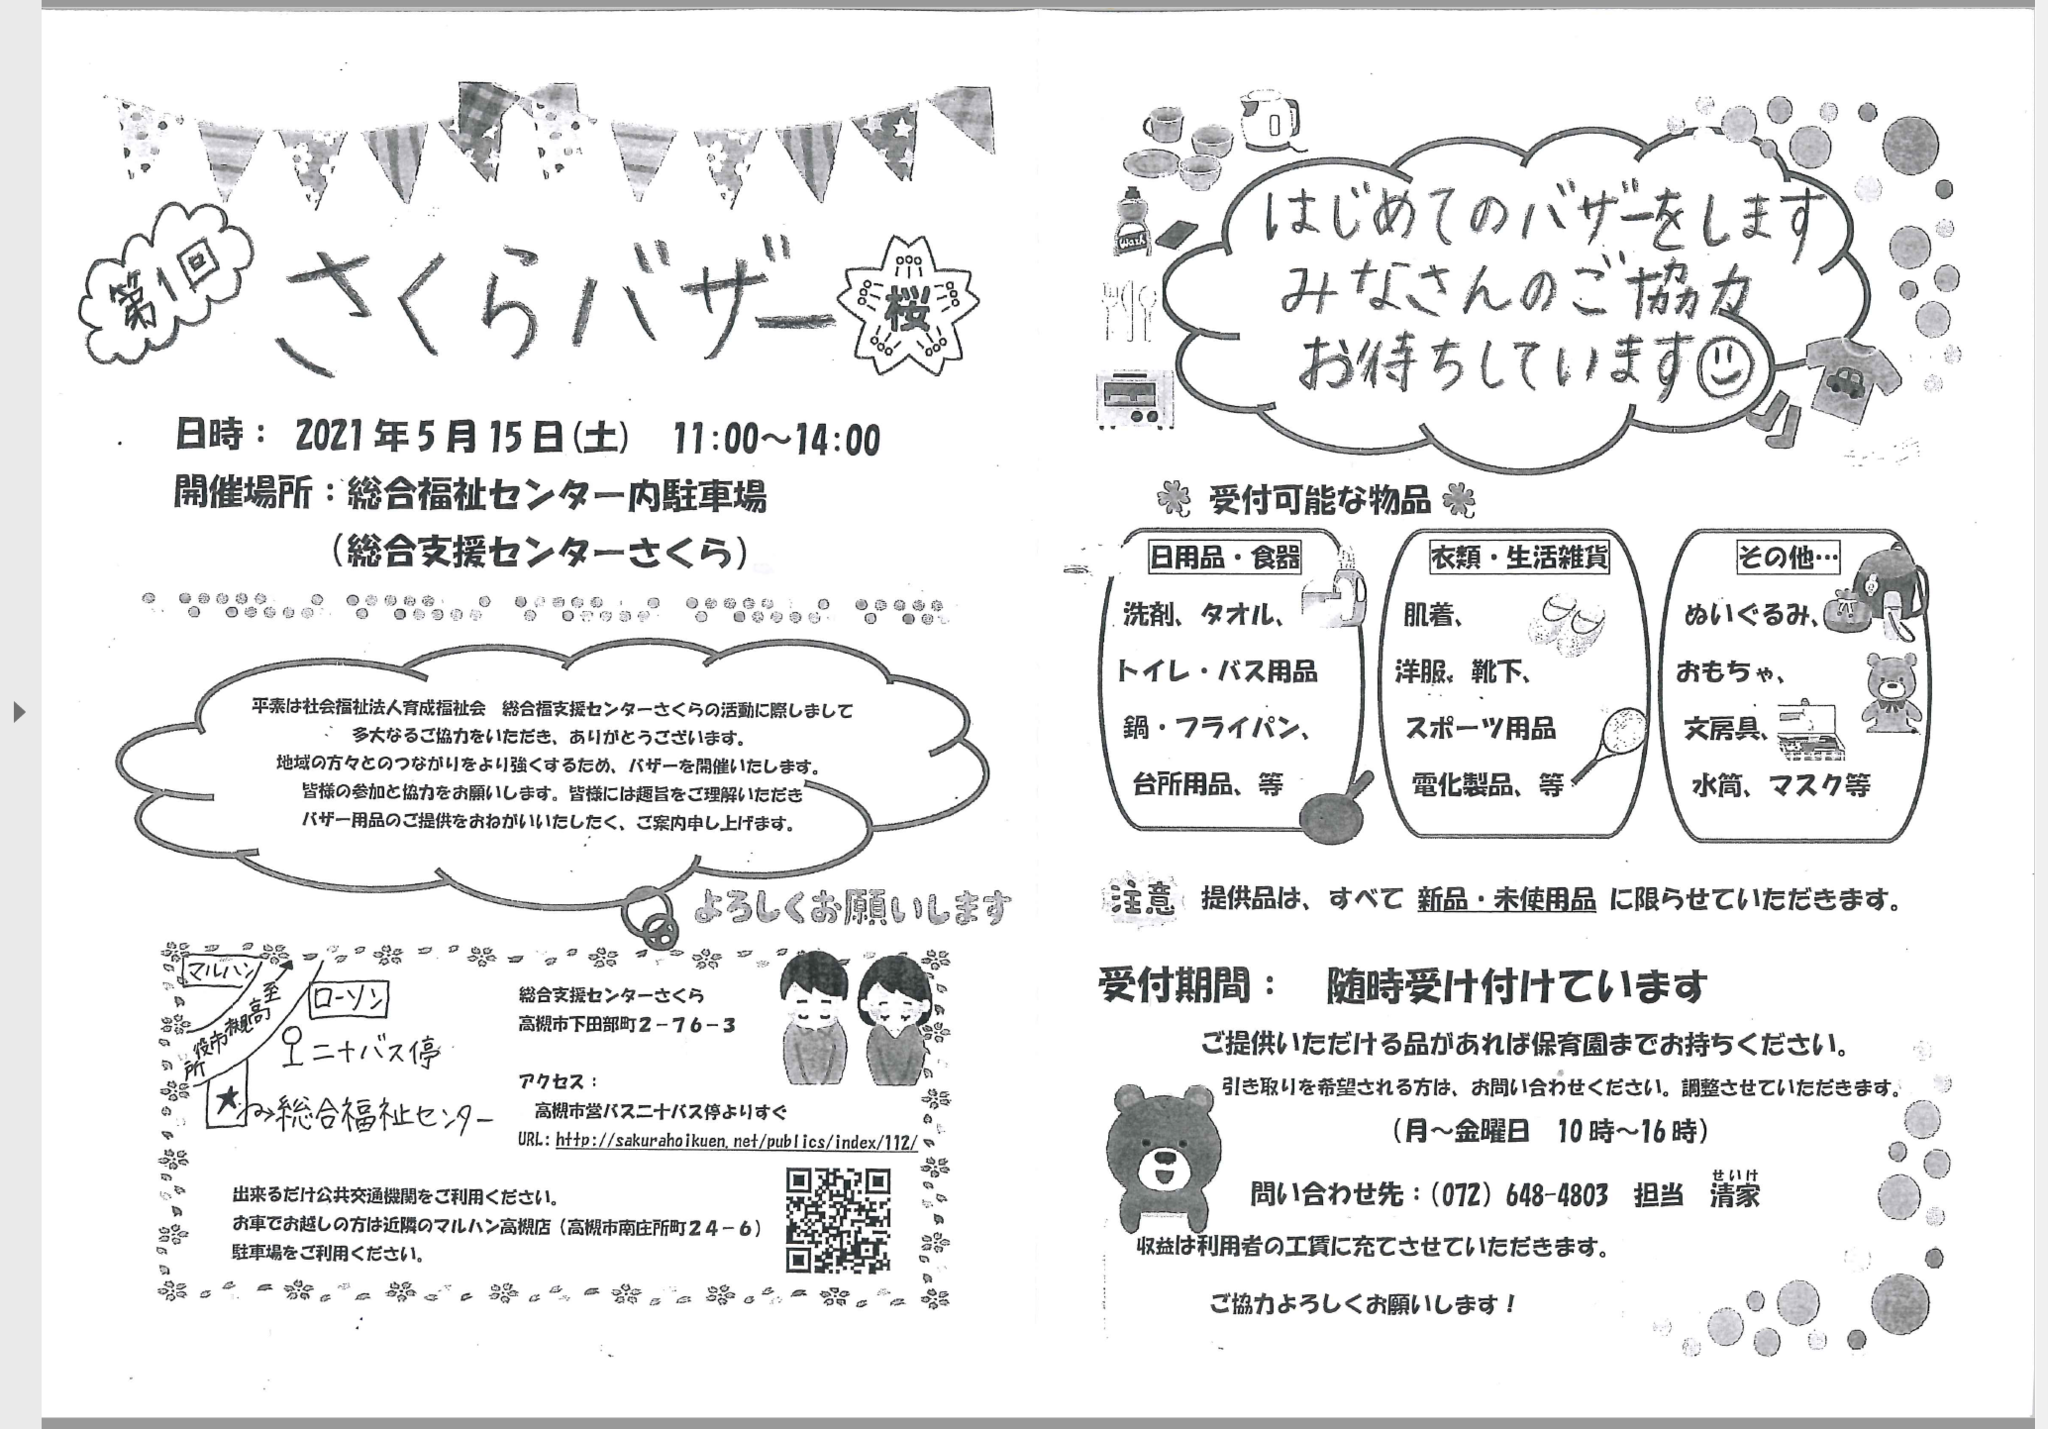 第1回
さくらバザー
桜
日時： 2021年5月15日(土) 11:00～14:00
開催場所：総合福祉センター内駐車場
（総合支援センターさくら）
平素は社会福祉法人育成福祉会 総合福支援センターさくらの活動に際しまして
多大なるご協力をいただき、ありがとうございます。
地域の方々とのつながりをより強くするため、バザーを開催いたします。
皆様の参加と協力をお願いします。皆様には趣旨をご理解いただき
バザー用品のご提供をおねがいいたしたく、ご案内申し上げます。
よろしくお願いします
マルハン
至高槻市役所
ローソン
二十バス停
総合福祉センター
総合支援センターさくら
高槻市下田部町２－７６－３
アクセス：
高槻市営バス二十バス停よりすぐ
URL: http://sakurahoikuen.net/publics/index/112/
出来るだけ公共交通機関をご利用ください。
お車でお越しの方は近隣のマルハン高槻店（高槻市南庄所町２４－６）
駐車場をご利用ください。
はじめてのバザーをします
みなさんのご協力
お待ちしています
Wash
受付可能な物品
日用品・食器
洗剤、タオル、
トイレ・バス用品
鍋・フライパン、
台所用品、等
衣類・生活雑貨
肌着、
洋服、靴下、
スポーツ用品
電化製品、等
その他…
ぬいぐるみ、
おもちゃ、
文房具、
水筒、マスク等
注意 提供品は、すべて 新品・未使用品 に限らせていただきます。
受付期間： 随時受け付けています
ご提供いただける品があれば保育園までお持ちください。
引き取りを希望される方は、お問い合わせください。調整させていただきます。
（月～金曜日 10時～16時）
せいけ
問い合わせ先：（072）648-4803 担当 清家
収益は利用者の工賃に充てさせていただきます。
ご協力よろしくお願いします！